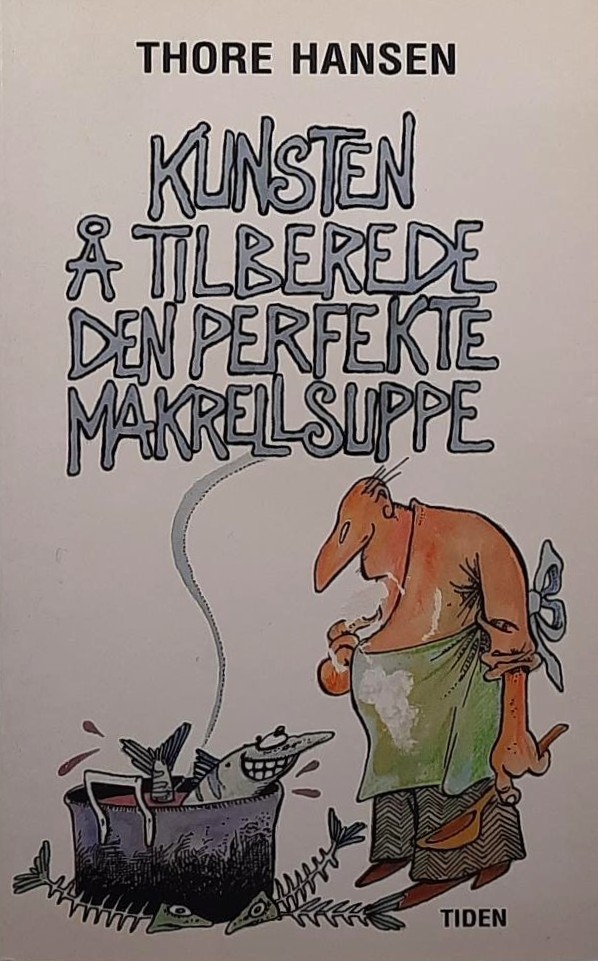 THORE HANSEN
KUNSTEN
Å TILBEREDE
DEN PERFEKTE
MAKRELLSUPPE
TIDEN